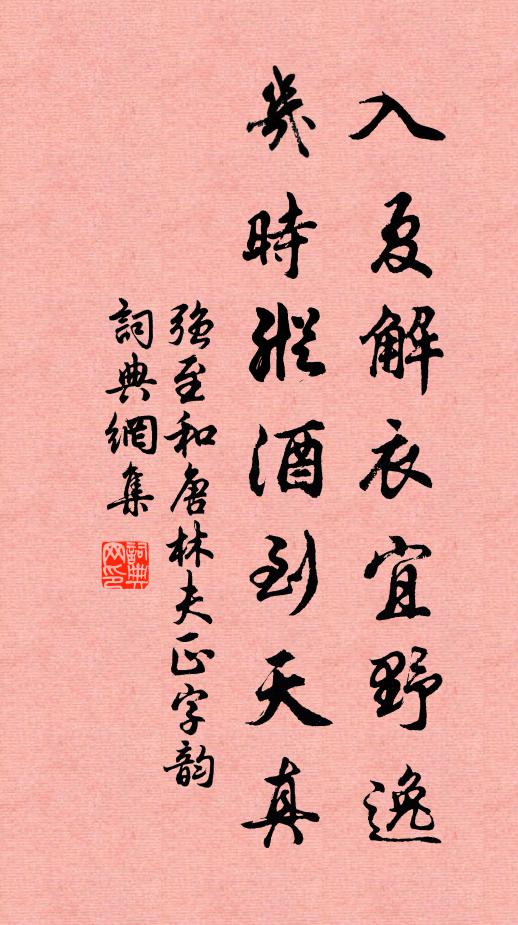 入夏解衣宜野逸
幾時縱酒到天真
強至和唐林夫正字韵
詞典網集
詞典網印